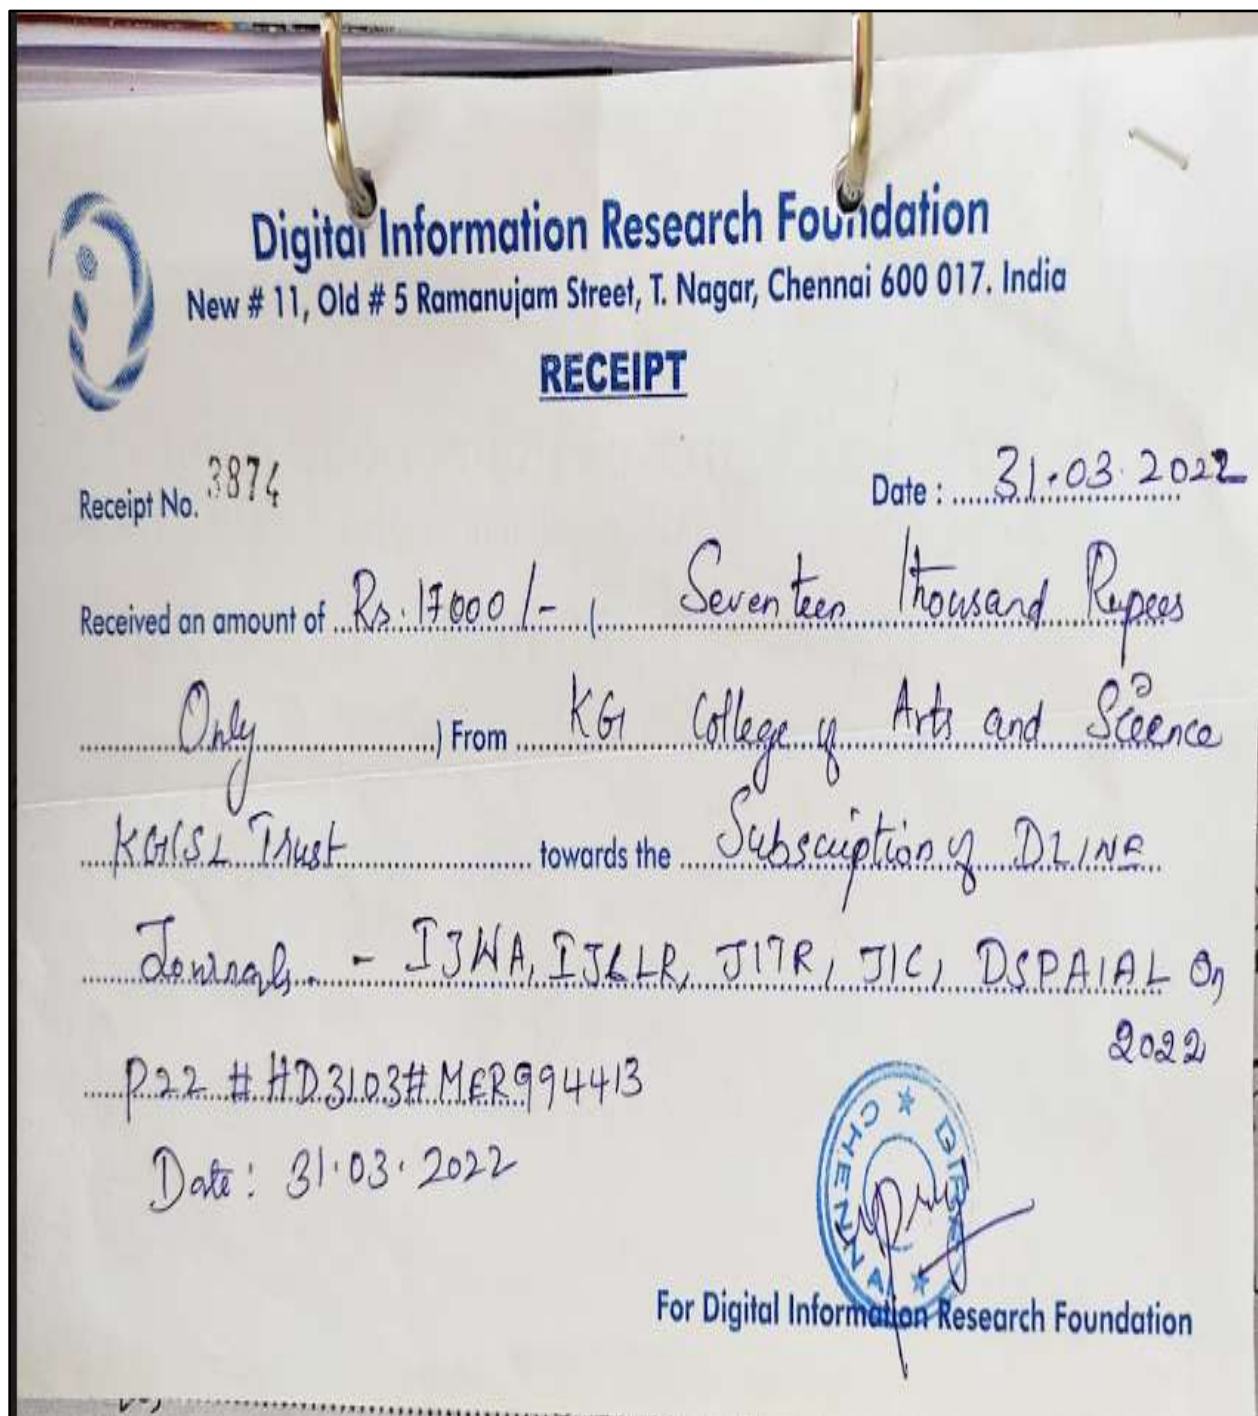 Digital Information Research Foundation
New # 11, Old # 5 Ramanujam Street, T. Nagar, Chennai 600 017. India
RECEIPT
Receipt No. 3874
Date : 31.03.2022
Received an amount of Rs. 17000/- ( Seventeen Thousand Rupees
Only ) From KG College of Arts and Science
KGiSL Trust towards the Subscription of DLINE
Journals - IJWA, IJCLR, JITR, JIC, DSPAIAL On
2022
P22 # HD3103# MER994413
Date : 31.03.2022
DIRF CHENNAI
For Digital Information Research Foundation